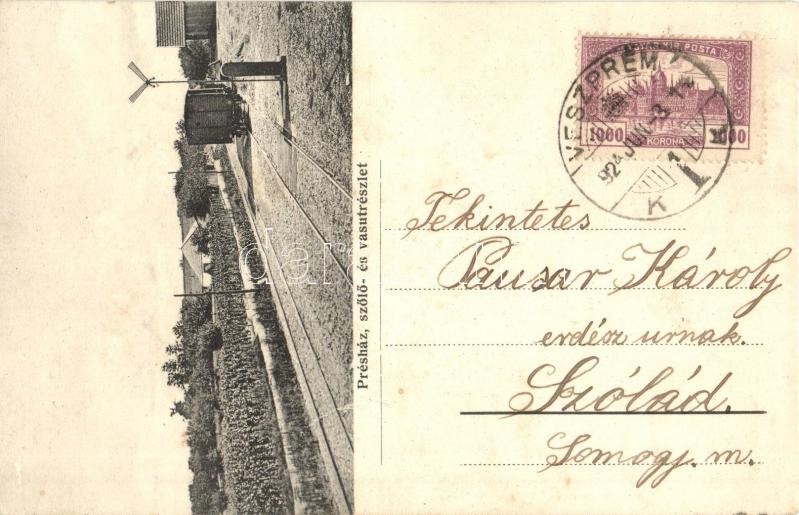 Présház, szőlő- és vasutrészlet
MAGYAR KIR. POSTA
1000 KORONA 1000
VESZPRÉM 1
924 JUN -3
K
Tekintetes
Pausar Károly
erdész urnak.
Szólád.
Somogy. m.